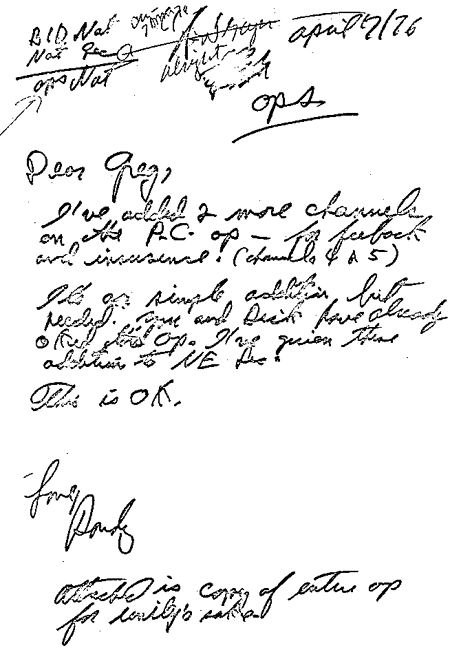 BID Nat
Nat Sec
ops Nat
April 9/76
ops
Dear Greg,
I've added 2 more channels
on the P.C. op — for feeback
and insurance. (channels 4 & 5)
It's a simple addition but
needed. and Dick have already
OKed this Op. I've given these
addition to NE Sec.
This is OK.
Love
Randy
attached is copy of entire op
for